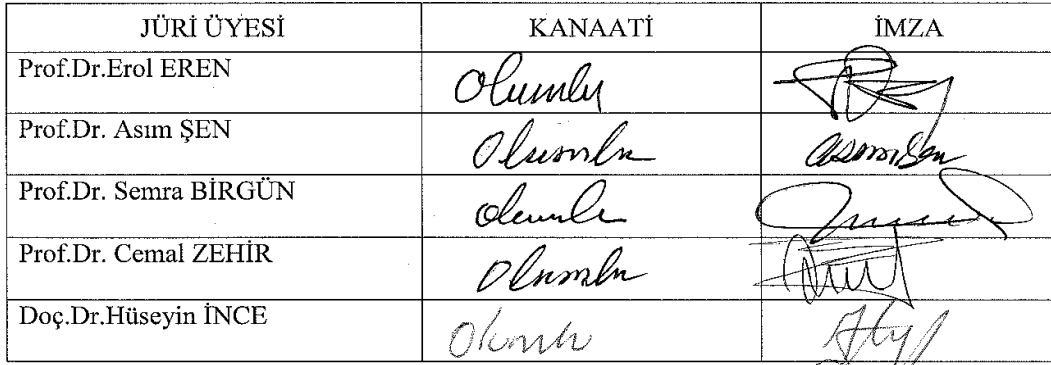 JÜRİ ÜYESİ KANAATİ İMZA
Prof.Dr.Erol EREN Olumlu
Prof.Dr. Asım ŞEN Olumlu Asım Şen
Prof.Dr. Semra BİRGÜN Olumlu
Prof.Dr. Cemal ZEHİR Olumlu
Doç.Dr.Hüseyin İNCE Olumlu